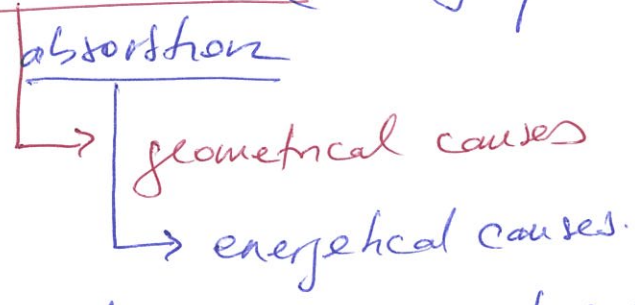 absorption
geometrical causes
energetical causes.